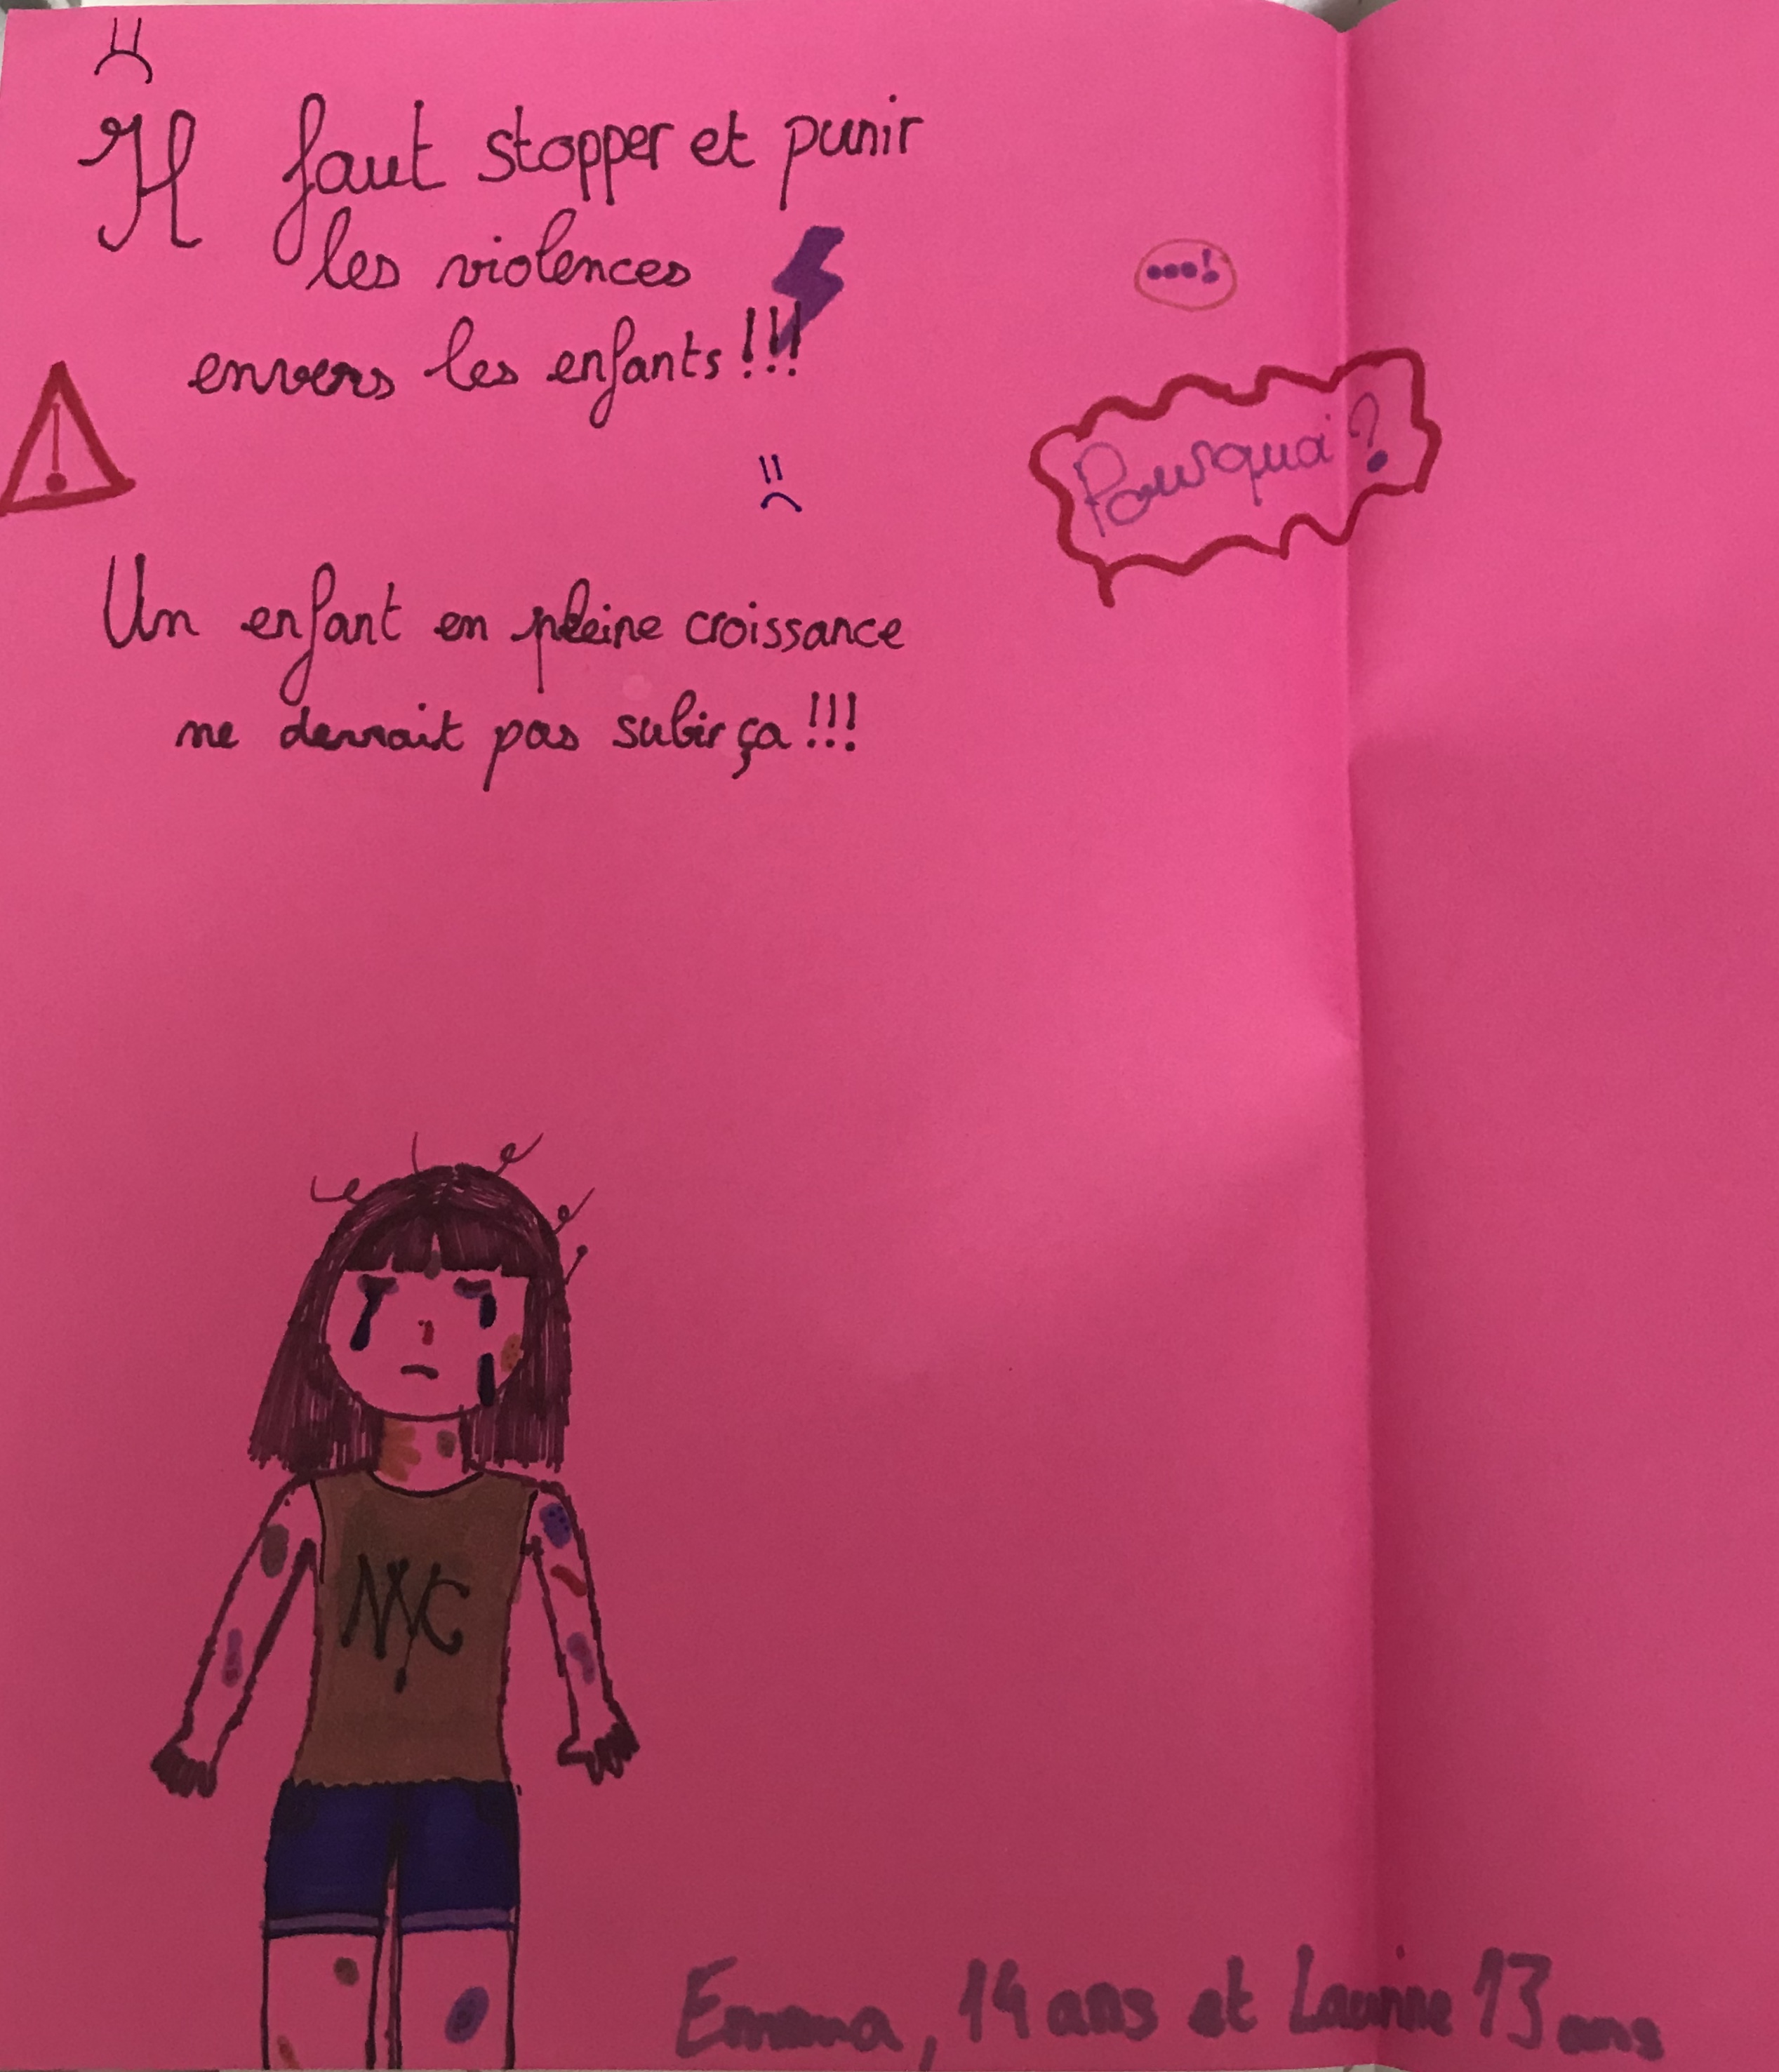 Il faut stopper et punir
les violences
envers les enfants !!!
...!
Pourquoi ?
Un enfant en pleine croissance
ne devrait pas subir ça !!!
NYC
Emma, 14 ans et 13 ans